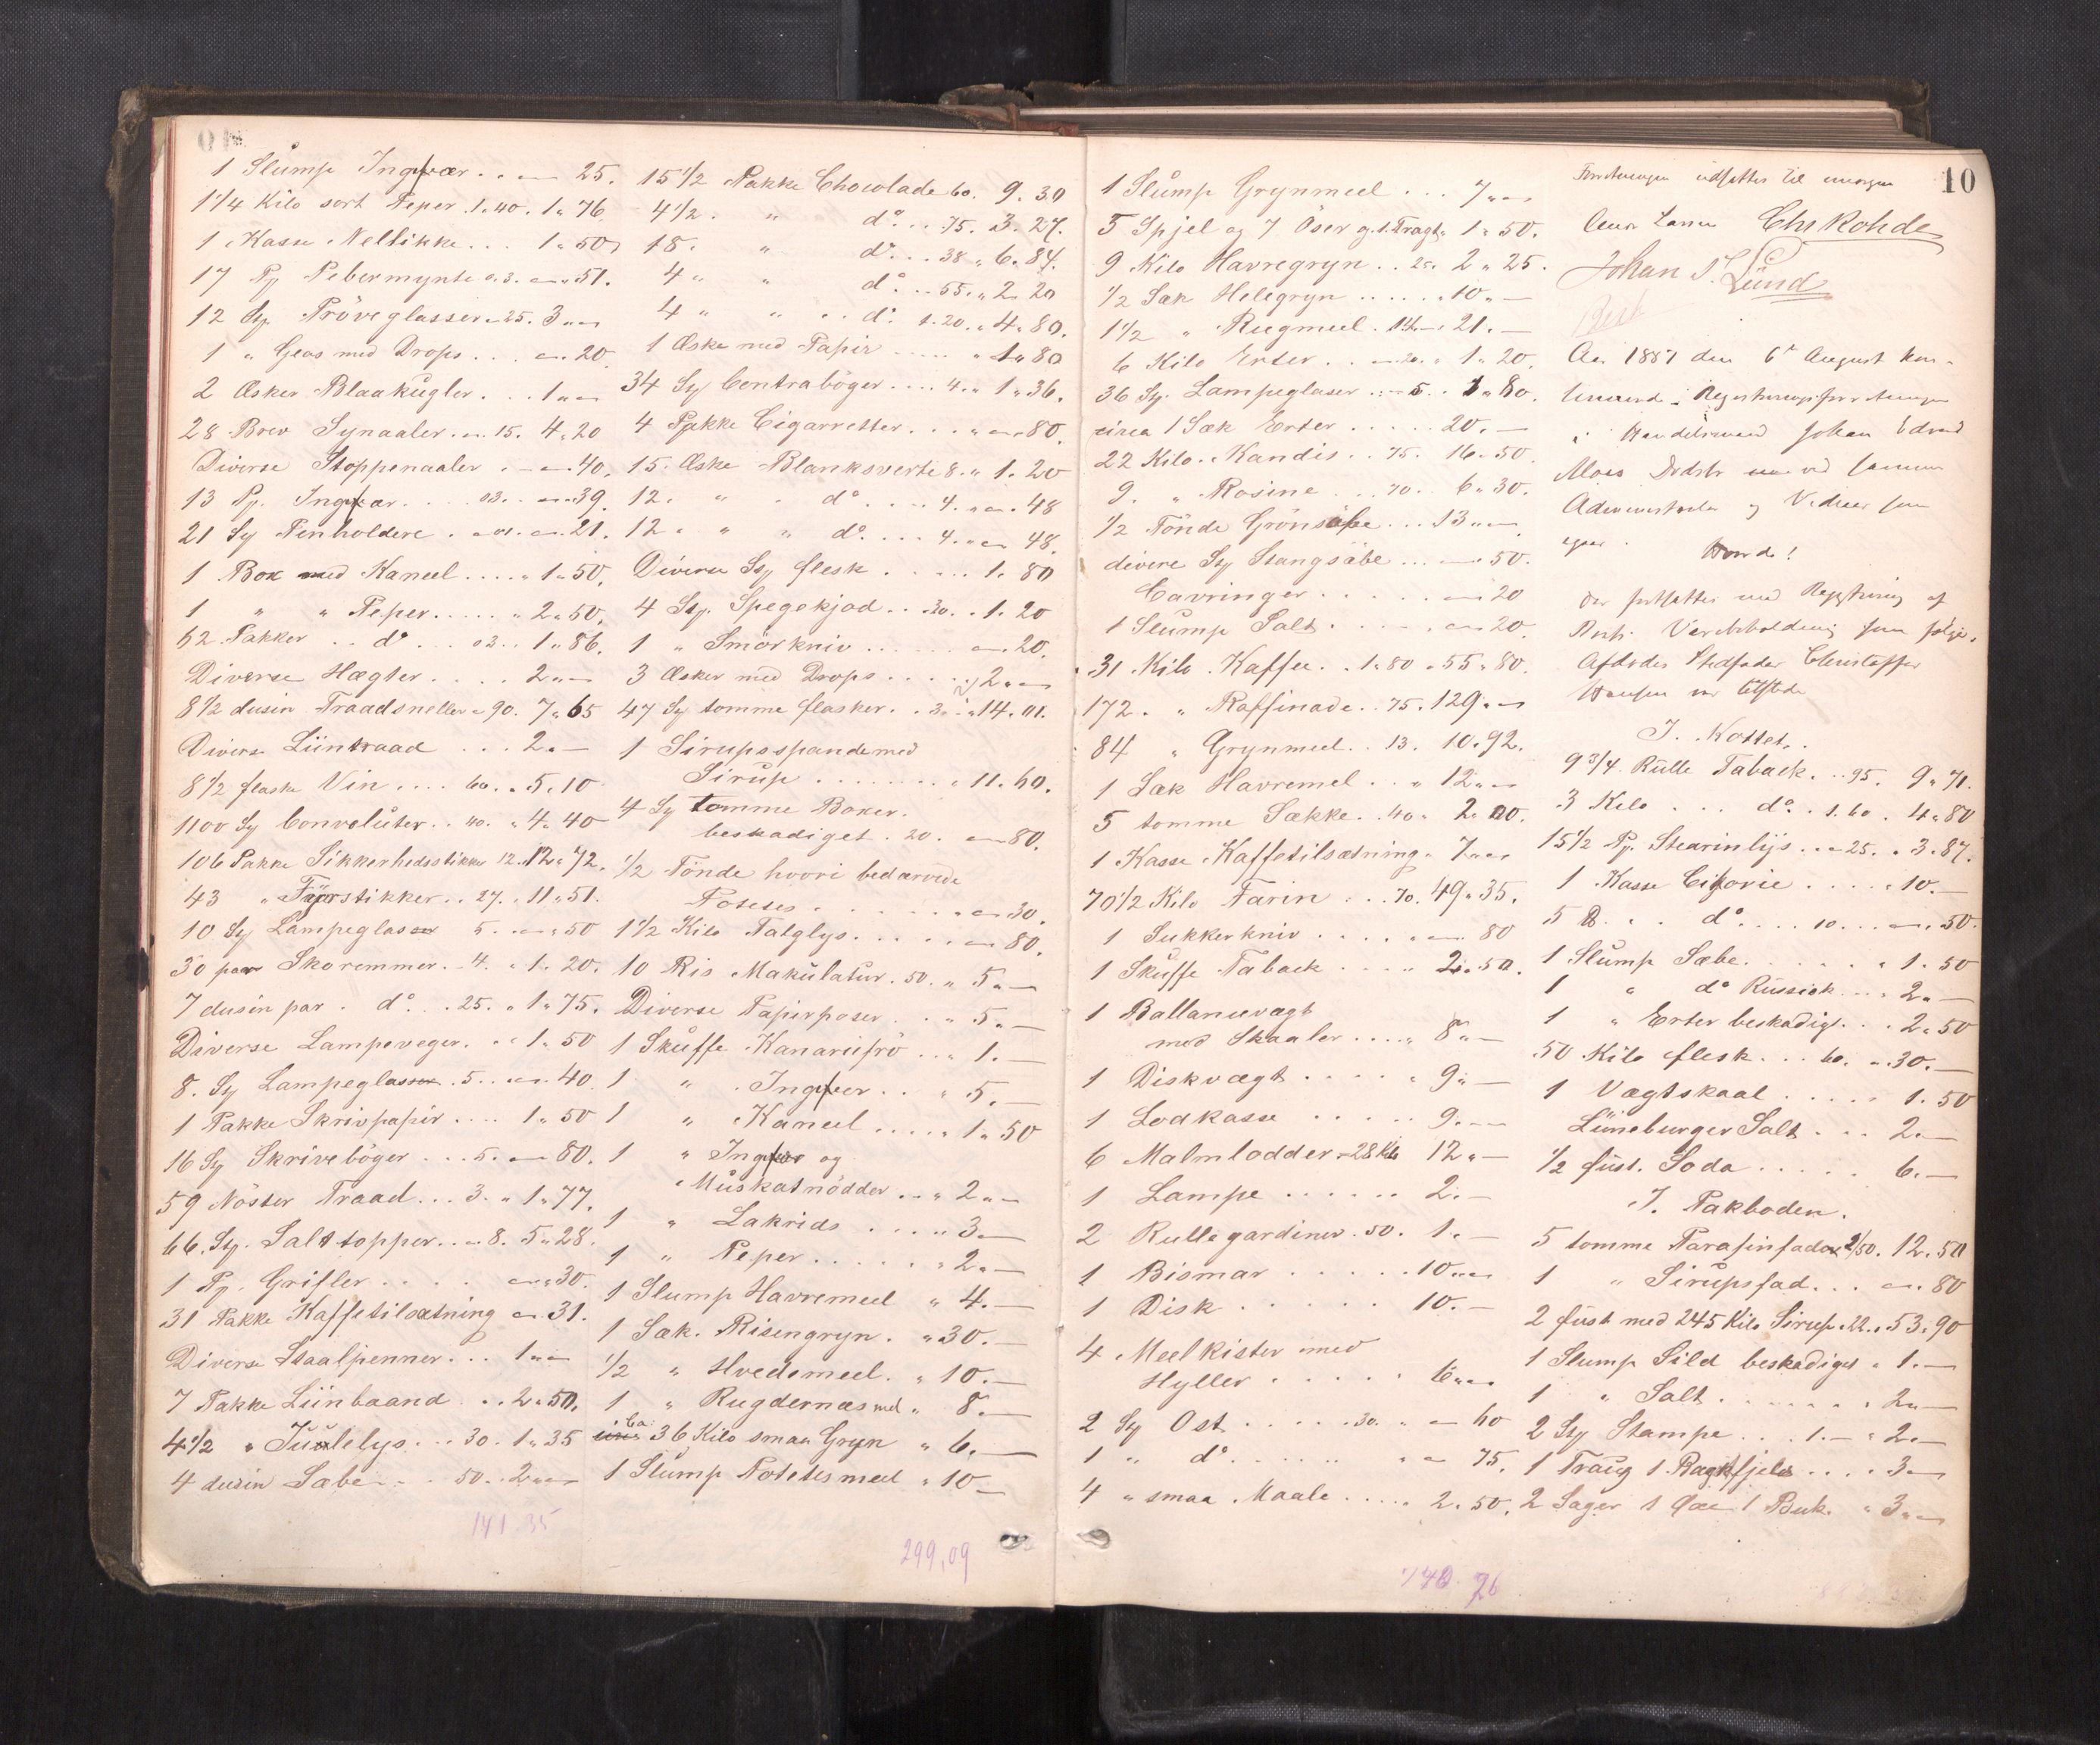 1 Slump Ingefær .. „ — 25.
1 1/4 Kilo sort Peper . 1.40. 1 „ 76
1 Kasse Nellikke ... 1 „ 50
17 Pj Pebermynte 0.3. — „ 51.
12 Sy. Pröveglasser „ 25. 3 „ —
1 „ Glas med Drops ... — 20.
2 Æsker Blaakugler . . . 1 „ —
28 Brev Synaaler . . 15. 4 „ 20
Diverse Stoppenaaler . — — 40.
13 Pj. Ingefær . . . 03. . — 39.
21 Sy Penholdere . — 01. — 21.
1 Box med Kaneel .... „ 1 „ 50.
1 „ „ Peper ..... „ 2 „ 50.
62 Pakker .. do ... 03 .. 1 „ 86.
Diverse Hægter .... 2 „ —
8 1/2 dusin Traadsneller „ 90. 7 „ 65
Diverse Liintraad ... 2 „ —
8 1/2 flaske Vin .... 60. „ 5 „ 10
1100 Sy Convoluter .. 40. „ 4 „ 40
106 Pakke Sikkerhedsstikker 12. 12 „ 72.
43 „ Fyrstikker .. 27. „ 11 „ 51.
10 Sy Lampeglasser 5. — „ 50
30 par Skoremmer . 4. „ 1 „ 20.
7 dusin par . do .. 25. „ 1 „ 75.
Diverse Lampeveger . . „ 1 „ 50
8. Sy Lampeglasser . 5 . . — 40.
1 Pakke Skrivpapir .... 1 „ 50
16 Sy Skriveböger ... 5. — 80.
59 Nöster Traad ... 3. „ 1 „ 77.
66. Sy. Salttopper . . „ 8. 5 „ 28.
1 Pj. Grifler . . . . — „ 30.
31 Pakke Kaffetilsætning — 31.
Diverse Staalpenner ... 1 „ —
7 Pakke Liinbaand . . 2 „ 50.
4 1/2 „ Juulelys ... 30. 1 „ 35
4 dusin Sæbe . . . 50 . . 2 „ —
141.35
15 1/2 Pakke Chocolade 60. 9 „ 30
4 1/2 . „ do . . 75. 3 „ 27.
18. „ do . . . 38 „ 6 „ 84.
4 „ „ do . . 55 . „ 2 „ 20
4 „ „ . . do 1.20. „ 4 „ 80.
1 Æske med Papir .... „ 1 „ 80
34 Sy Contraböger .... 4. „ 1 „ 36.
4 Pakke Cigarretter ... „ — 80.
15. Æske Blanksverte 8. „ 1 „ 20
12. „ „ do .... 4. „ — 48
12 „ „ „ do .... 4. „ — 48.
Diverse Sy flesk ..... 1 „ 80
4 Sy. Spegekjød .. 30. . 1 „ 20
1 „ Smörkniv ..... — 20.
3 Æsker med Drops ..... 2 „ —
47 Sy tomme flasker . . 3. „ 14.01.
1 Sirupsspande med
Sirup ....... „ 11.60.
4 Sy tomme Boxer.
beskadiget . 20. — 80.
1/2 Tönde hvori bedærvede
Poteter ....... „ — 30.
1 1/2 Kilo Talglys ..... — 80.
10 Ris Makulatur . 50. „ 5 „ —
Diverse Papirposer ... „ 5 „ —
1 Skuffe Kanarifrö ... „ 1. —
1 „ Ingefer .. „ 5. —
1 „ Kaneel .... „ 1 „ 50
1 „ Ingefær og
Muskatnödder ... „ 2 „ —
1 „ Lakrids .... „ 3 —
1 „ Peper ..... „ 2 „ —
1 Slump Havremeel „ 4. —
1 Sæk. Risengryn . „ 30. —
1/2 „ Hvedemeel . „ 10. —
1 „ Rugdernæs med „ 8. —
Ca: 36 Kilo smaa Gryn „ 6. —
1 Slump Potetesmeel „ 10 —
299,09
10
1 Slump Grynmeel ... 7 „ —
5 Spjel og 7 Öser og 1. Tragt „ 1 „ 50.
9 Kilo Havregryn .. 25. 2 „ 25.
1/2 Sæk Helegryn ...... „ 10 „ —
1 1/2 „ Rugmeel . 14 — „ 21. —
6 Kilo Erter . . — 20. „ 1 „ 20.
36 Sy. Lampeglaser . . — 5. . 1 „ 80.
circa 1 Sæk Erter ..... 20. —
22 Kilo „ Kandis .. 75. 16 „ 50.
9. „ Rosine ... 70. . 6 „ 30.
1/2 Tönde Grönsäbe ... 13 „ —
divere Sy Stangsäbe ... — 50.
Cavringer ..... — 20
1 Slump Salt .... — 20.
31 Kilo Kaffee . . 1 „ 80 „ 55 „ 80.
172. „ Raffinade .. 75. 129 „ —
84 „ Grynmeel .. 13. 10 „ 92.
1 Sæk Havremel . . „ 12 „ —
5 tomme Sække .. 40 „ 2 „ 00.
1 Kasse Kaffetilsætning „ 7 „ —
70 1/2 Kilo Farin ... 70. 49 „ 35.
1 Sukkerkniv ..... — 80
1 Skuffe Taback .... „ 2 „ 50.
1 Ballancevægt
med Skaaler .... „ 8 „ —
1 Diskvægt .... „ 9 „ —
1 Lodkasse ..... 9. —
6 Malmlodder — 28 Kilo 12 „ —
1 Lampe ...... 2. —
2 Rullegardiner . 50. 1. —
1 Bismar ..... 10 „ —
1 Disk ..... 10. —
4 Meelkister med
Hyller ..... 6 „ —
2 Sy Ost ..... 30. „ — 60
1 „ do ..... „ — 75.
4 „ smaa Maale .... „ 2 „ 50.
740.76
Forretningen udsattes til imorgen
Chr Rohde
Johan J. Lund
Aar 1887 den 6te August
i Handelsmand Johan Edvard
afdødes Stedfader Christoffer
Hansen var tilstede
I. Kottet.
9 3/4 Rulle Taback . . 95. 9 „ 71.
3 Kilo ... do . . 1.60. 4 „ 80
15 1/2 Pj. Stearinlijs . . „ 25. „ 3 „ 87.
1 Kasse Cikorie .... „ 10. —
5 ℔ . . do .... 10 ... — „ 50.
1 Slump Sæbe ...... „ 1. 50
1 „ do Russisk ... „ 2 „ —
1 „ Erter beskadigt . . „ 2 „ 50
50 Kilo flesk ... 60. „ 30. —
1 Vægtskaal ..... 1. 50
Lüneburger Salt ... 2. —
1/2 fust. Soda ..... 6. —
I. Pakboden.
5 tomme Parafinfade 2/50. 12 „ 50
1 „ Sirupsfad ... — „ 80
2 fust med 245 Kilo Sirup „ 22 . „ 53 „ 90
1 Slump Sild beskadiget „ 1. —
1 „ Salt ...... „ 2 „ —
2 Sy Stampe ... 1. — „ 2. —
1 Traug 1 Bagefjel .... 3 —
2 Sager 1 1 Buk. „ 3 „ —